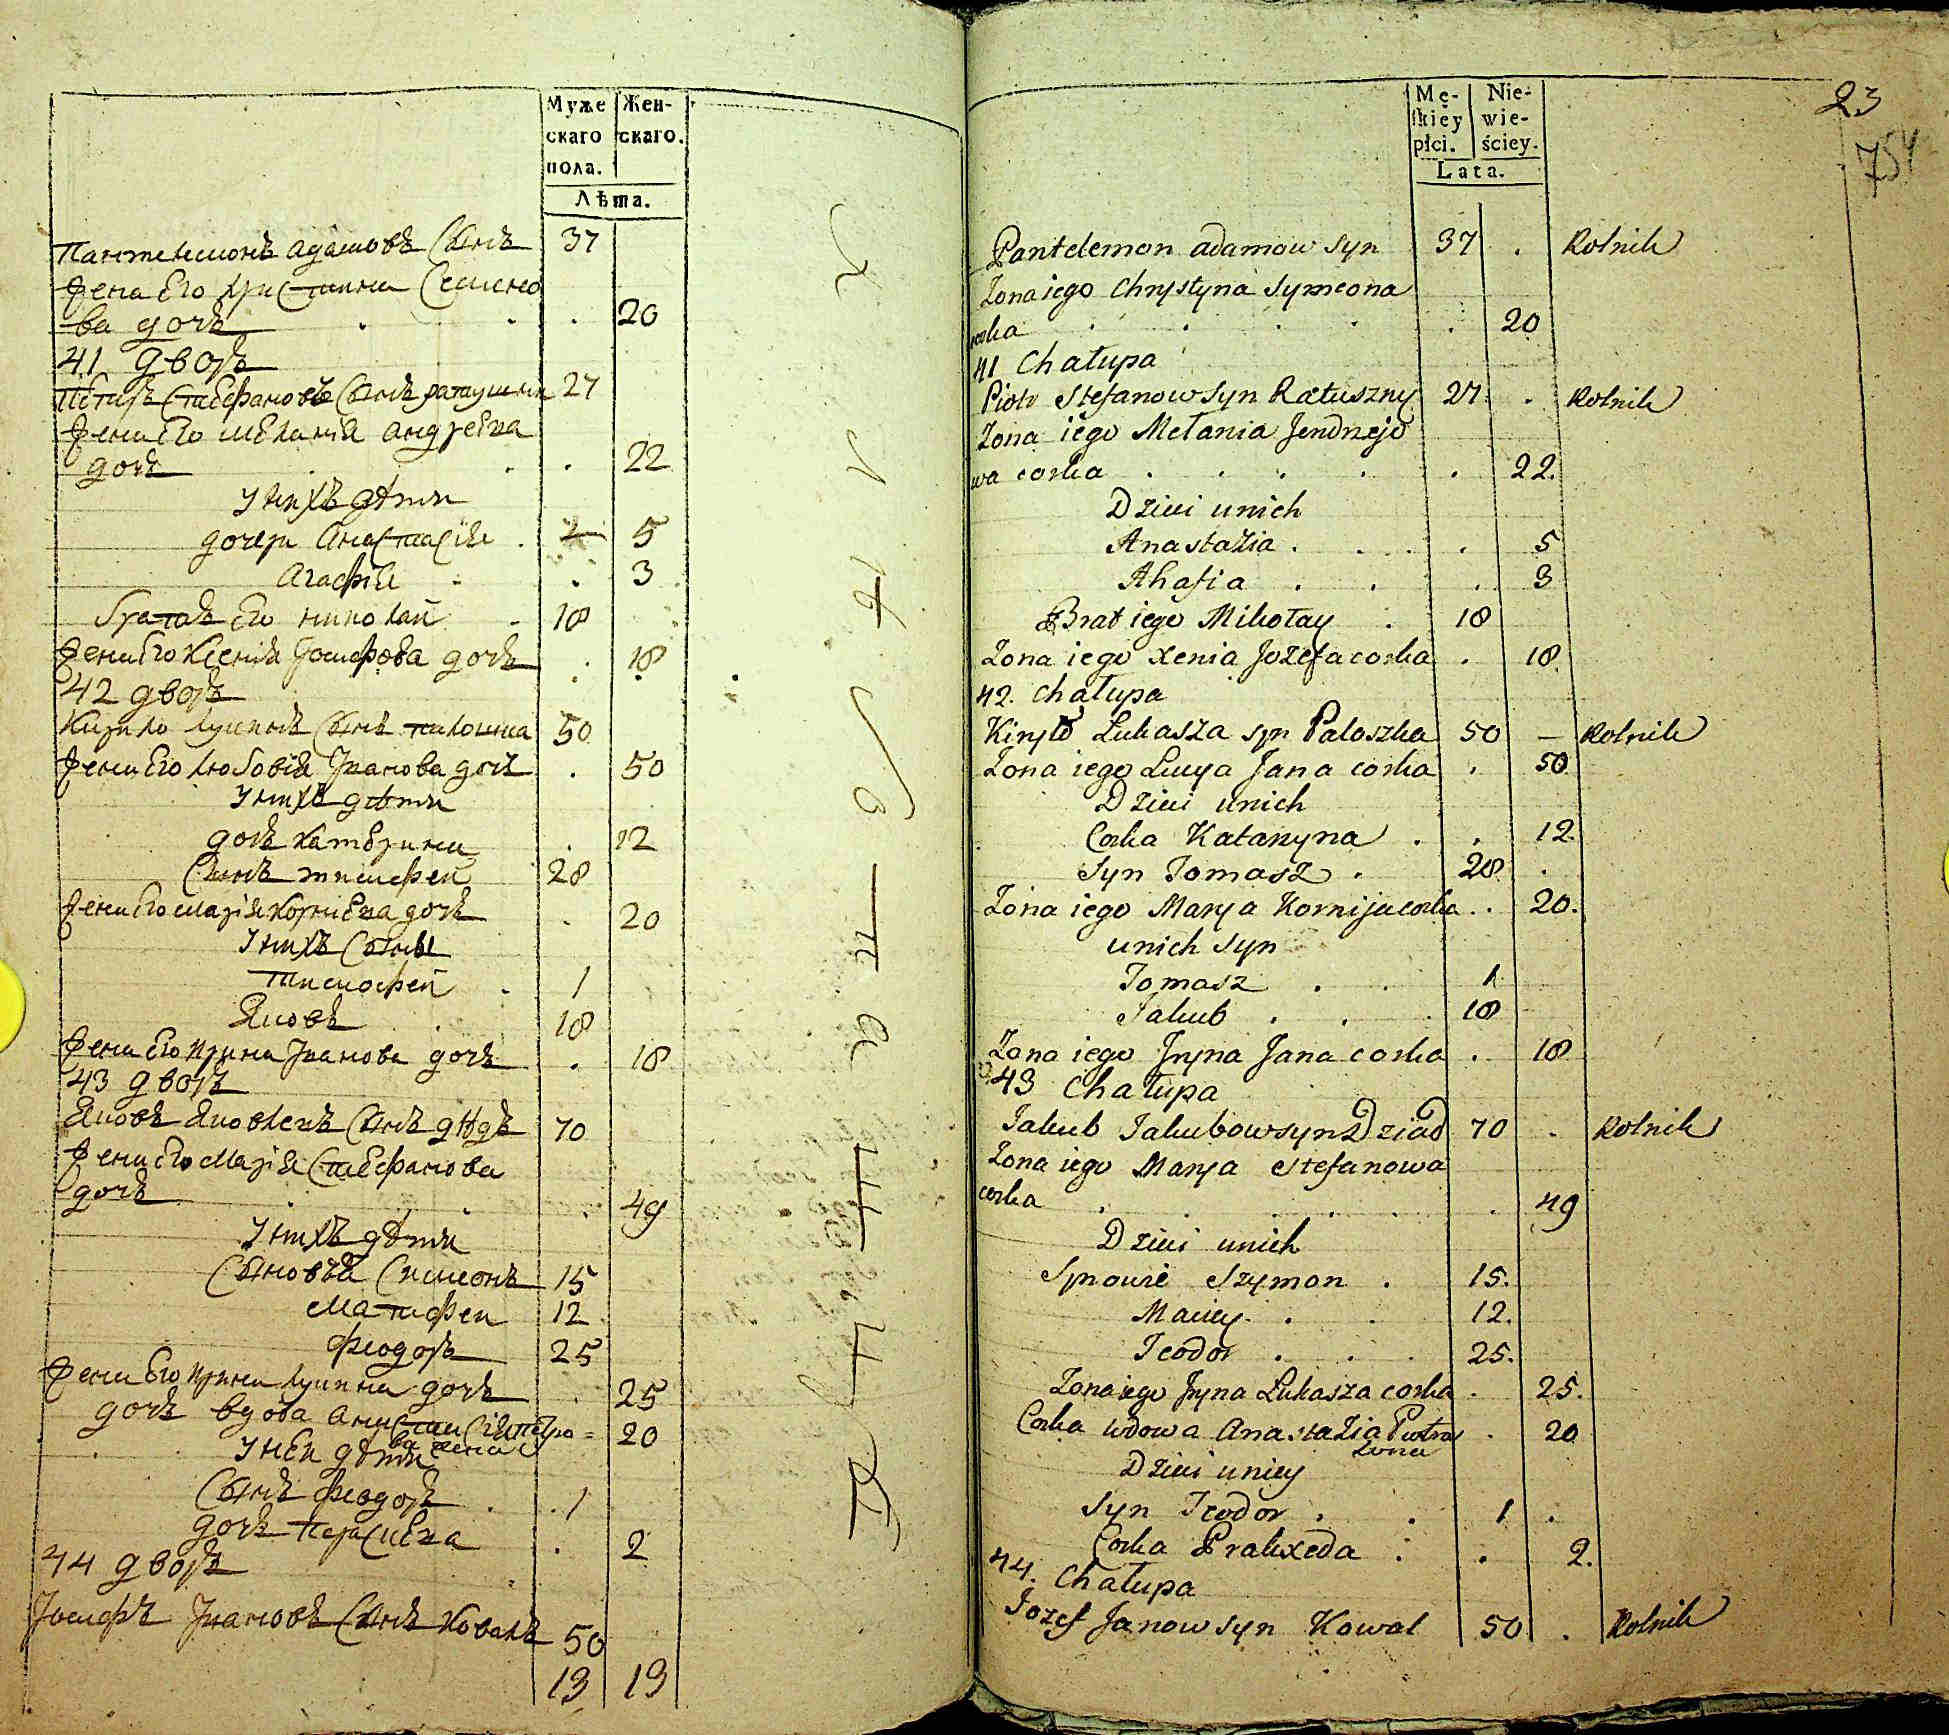 Муже Жен-
скаго скаго.
пола.
Лѣта.
Пантелимонъ Адамовъ Сынъ 37
Жена Его Христина Семено
ва дочь 20
41 дворъ
Петръ Стефановъ Сынъ ратушни 27
Жена Его Меланія Андреева
дочь 22
У нихъ дѣти
дочери Анастасія 5
Агафія 3
братъ Его николай 18
Жена Его Ксенія Іосифова дочь 18
42 дворъ
Кирило Лукинъ Сынъ палошка 50
Жена Его Любовія Іванова дочь 50
У нихъ дѣти
дочь Катерина 12
Сынъ тимофей 28
Жена Его Марія Корніева дочь 20
У нихъ Сыны
тимофей 1
Яковъ 18
Жена Его Ирина Іванова дочь 18
43 дворъ
Яковъ Яковлевъ Сынъ дѣдъ 70
Жена Его Марія Стефанова
дочь 49
У нихъ дѣти
Сыновья Симеонъ 15
Матфей 12
Феодоръ 25
Жена Его Ирина Лукина дочь 25
дочь вдова Анастасія Петро 20
ва жена
У ней дѣти
Сынъ Феодоръ 1
дочь Параскева 2
44 дворъ
Іосифъ Івановъ Сынъ Коваль 50
13 13
23
754
Mę- Nie-
skiey wie-
płci. ściey.
Lata.
Pantelemon adamow Syn 37 . Rolnik
Zona iego Chrystyna Symeona
corka 20
41 Chałupa
Piotr Stefanow Syn Ratuszny 27. . Rolnik
Zona iego Mełania Jendrzejo
wa corka 22.
Dzieci unich
Anastazia 5
Ahafia 3
Brat iego Mikołay 18
Zona iego Xenia Jozefa corka 18.
42. chałupa
Kiryło Łukasza syn Paloszka 50 — Rolnik
Zona iego Lucya Jana corka 50
Dzieci unich
Corka Katarzyna 12.
Syn Tomasz 28.
Zona iego Marya Kornija corka 20.
unich syn
Tomasz 1
Jakub 18
Zona iego Jryna Jana corka 18
43 Chałupa
Jakub Jakubow syn Dziad 70 . Rolnik
Zona iego Marya Stefanowa
corka 49
Dzieci unich
Synowie Szymon 15.
Maciey 12.
Teodor 25.
Zona iego Jryna Łukasza corka 25.
Corka wdowa Anastazia Piotra 20
zona
Dzieci uniey
Syn Teodor 1
Corka Prakxeda 2.
44. Chałupa
Jozef Janow syn Kowal 50 . Rolnik